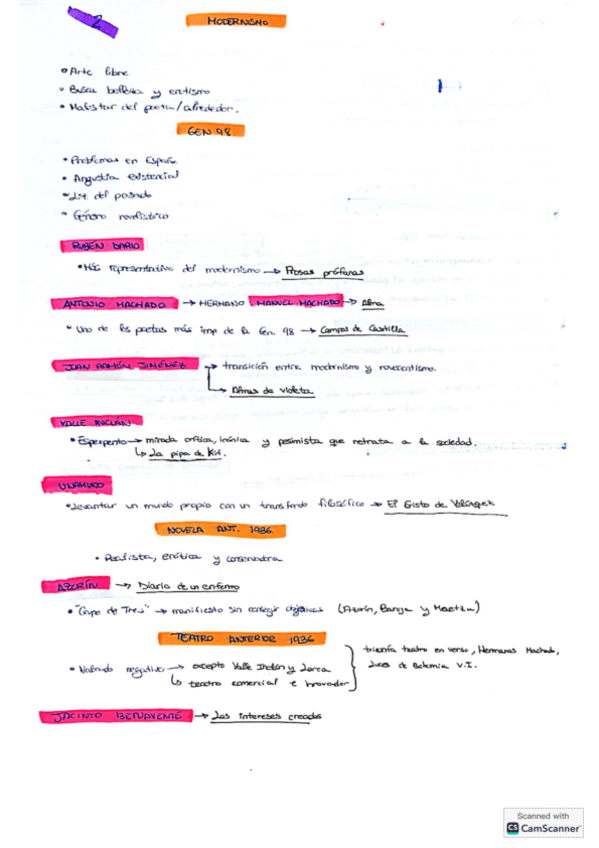 2
MODERNISMO
• Arte libre
• Busca belleza y erotismo
• Malestar del poeta/alrededor.
GEN 98
• Problemas en España.
• Angustia existencial
• Lit. del pasado
• Género novelístico
RUBÉN DARÍO
• Más representativo del modernismo → Prosas profanas
ANTONIO MACHADO → HERMANO MANUEL MACHADO → Alma
• Uno de los poetas más imp de la Gen. 98 → Campos de Castilla
JUAN RAMÓN JIMÉNEZ → transición entre modernismo y novecentismo.
↳ Almas de violeta.
VALLE INCLÁN
• Esperpento → mirada crítica, irónica y pesimista que retrata a la sociedad.
↳ La pipa de Kif.
UNAMUNO
• Levantar un mundo propio con un transfondo filosófico → El Cristo de Velázquez
NOVELA ANT. 1936
• Realista, erótica y conservadora
AZORÍN → Diario de un enfermo
• "Grupo de Tres" → manifiesto sin conseguir objetivos (Azorín, Baroja y Maeztu)
TEATRO ANTERIOR 1936
triunfa teatro en verso, Hermanos Machado,
• negativo → excepto Valle Inclán y Lorca
Luces de Bohemia V.I.
↳ teatro comercial e innovador
JACINTO BENAVENTE → Los intereses creados
Scanned with
CS CamScanner